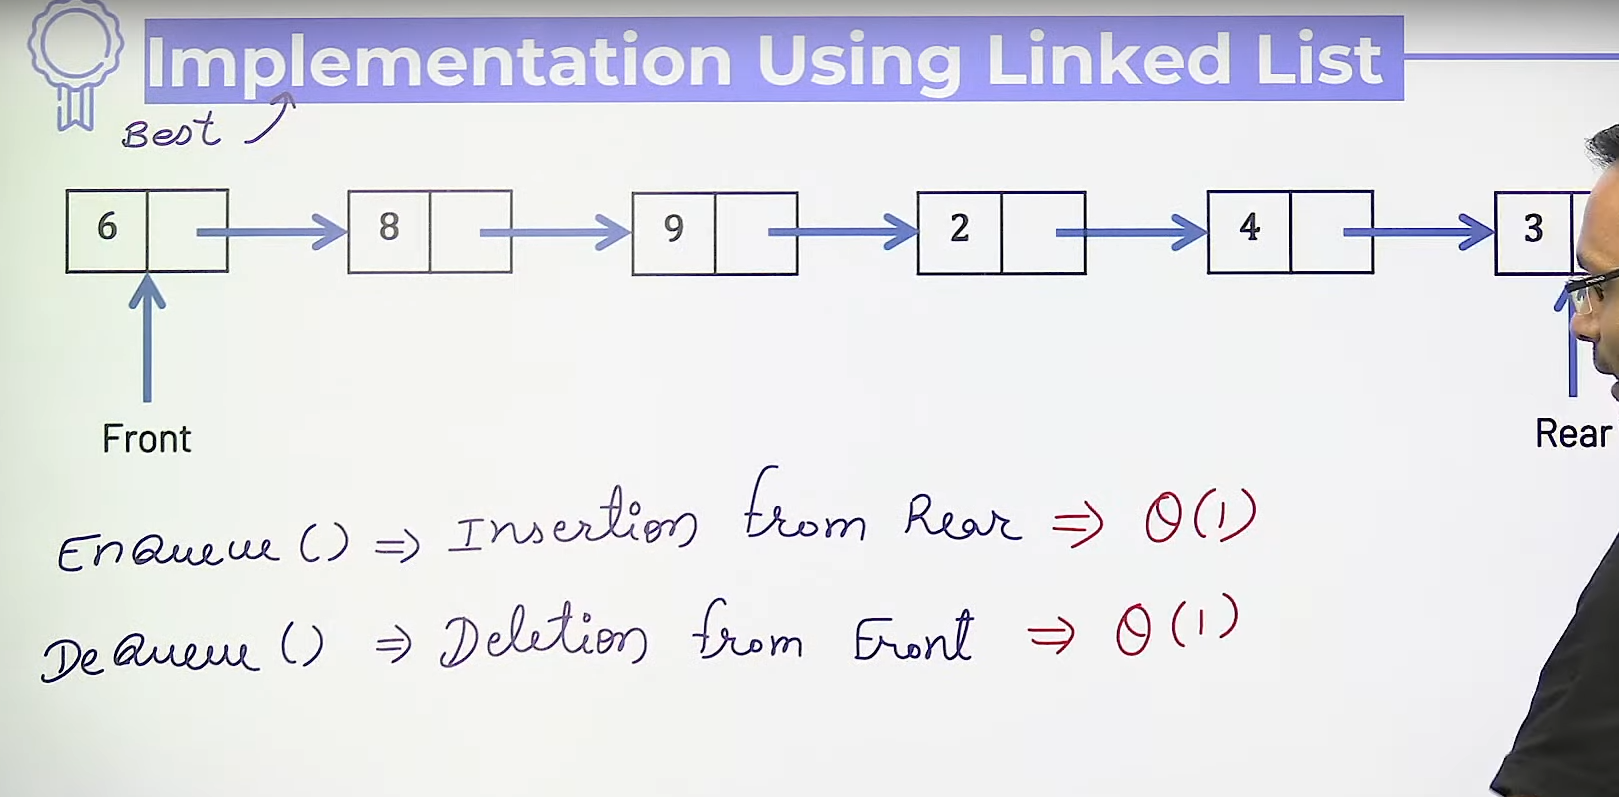 Implementation Using Linked List
Best
6 8 9 2 4 3
Front Rear
EnQueue () ⇒ Insertion from Rear ⇒ θ(1)
DeQueue () ⇒ Deletion from Front ⇒ θ(1)